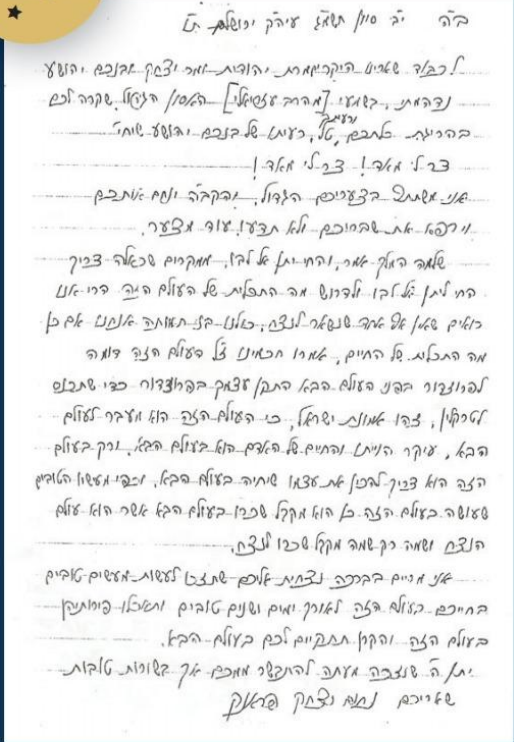 ב"ה י"ב סיון תשמ"ג עיה"ק ירושלם ת"ו
לכבוד שארינו היקרים מרת יהודית ומר יצחק ובנכם יהושע
נדהמתי, בשמעי [מהרב עזריאלי] האסון הגדול, שקרה לכם
ורעיתו
בהריגת כלתכם, טל, רעיתו של בנכם יהושע שיחי'
צר לי מאד! צר לי מאד!
אני משתתף בצערכם הגדול, והקב"ה ינחם אותכם
וירפא את שבריכם ולא תדעו עוד מצער.
שלמה המלך אמר, והחי יתן אל לבו, ממקרים שכאלה צריך
החי ליתן אל לבו ולדרוש מה התכלית של העולם הזה הרי אנו
רואים שאין אף אחד שנשאר לנצח, כולנו בני תמותה אנחנו אם כן
מה התכלית של החיים, אמרו חכמינו ז"ל העולם הזה דומה
לפרוזדור בפני העולם הבא התקן עצמך בפרוזדור כדי שתכנס
לטרקלין, זהו אמונת ישראל, כי העולם הזה הוא מעבר לעולם
הבא, עיקר החיים של האדם הוא בעולם הבא, ורק בעולם
הזה הוא צריך להכין את עצמו שיחיה בעולם הבא, וכפי מעשיו הטובים
שעושה בעולם הזה כן הוא מקבל שכרו בעולם הבא אשר הוא עולם
הנצח ושמה רק שמה מקבל שכרו לנצח.
אני מסיים בברכה נצחית אליכם שתזכו לעשות מעשים טובים
בחייכם בעולם הזה לאורך ימים ושנים טובים ותאכלו פירותיהן
בעולם הזה והקרן תתקיים לכם בעולם הבא.
יתן ה' שנזכה מעתה להתבשר ממכם אך בשורות טובות
שאריכם נחום יצחק פראנק